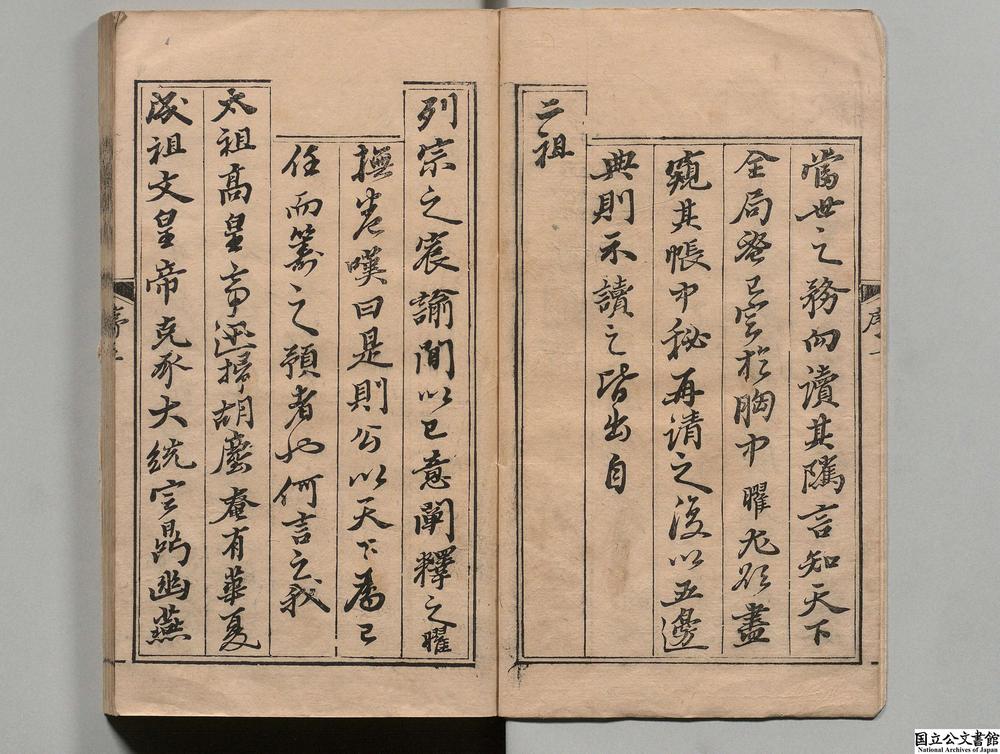 當世之務向讀其隲言知天下
全局發已定於胸中曜尤欲盡
窺其帳中秘再請之後以五邊
典則示讀之皆出自
二祖
列宗之宸諭間以己意闡釋之曜
撫卷嘆曰是則公以天下為己
任而籌之預者也何言之我
太祖高皇帝迅掃胡塵奄有華夏
成祖文皇帝克承大統定鼎幽燕
序一
国立公文書館
National Archives of Japan